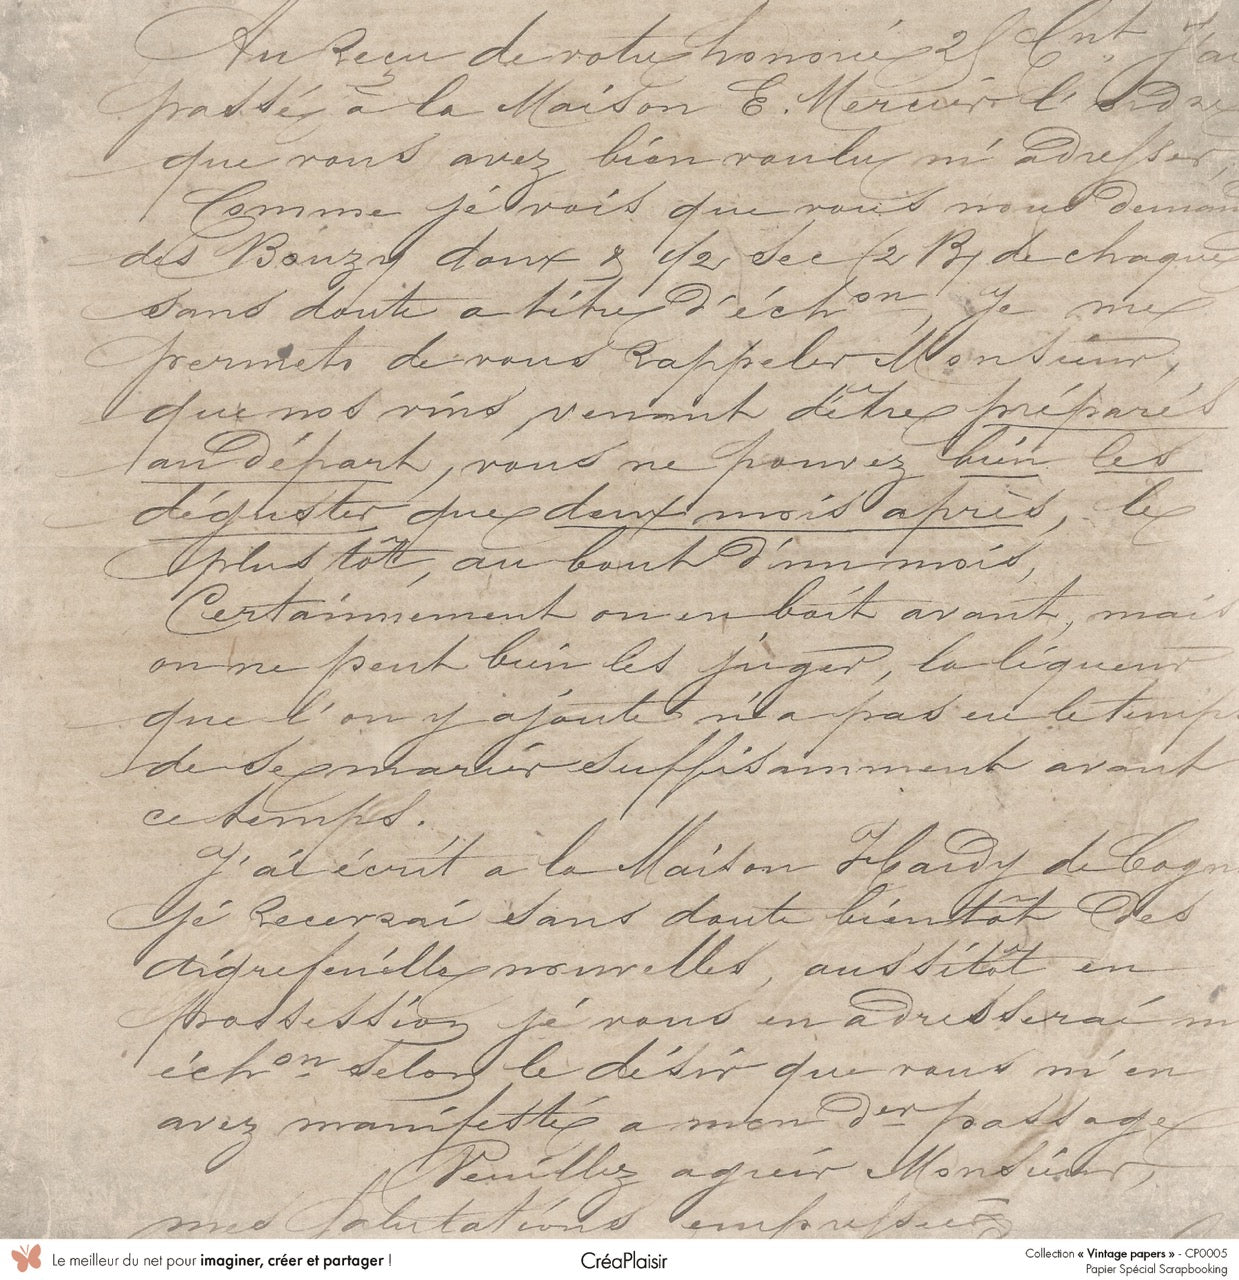 Au Reçu de votre honorée 25 Cnt J'ai
passé à la Maison E. Mercier l'ordre
que vous avez bien voulu m'adresser,
Comme je vois que vous nous deman
des Bouzy doux & 1/2 sec (2 Bs de chaque
sans doute a titre d'échon Je me
permets de vous Rappeler Monsieur,
que nos vins venant d'être préparés
au départ, vous ne pouvez bien les
déguster que deux mois après, le
plus tôt, au bout d'un mois,
Certainnement on en boit avant, mais
on ne peut bien les juger, la liqueur
que l'on y ajoute n'a pas eu le temps
de se marier suffisamment avant
ce temps.
J'ai écrit a la Maison Hardy de Cogn
je Recevrai sans doute bientôt des
aigrefeuille nouvelles, aussitôt en
possession je vous en adresserai un
échon selon le désir que vous m'en
avez manifesté a mon der passage
Veuillez agréer Monsieur,
mes salutations empressées
Le meilleur du net pour imaginer, créer et partager !
CréaPlaisir
Collection « Vintage papers » - CP0005
Papier Spécial Scrapbooking